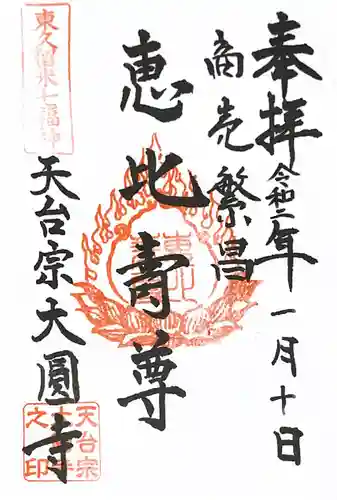 奉拝
令和二年
一月十日
商売繁昌
恵比壽尊
東久留米七福神
天台宗大圓寺
天台宗
之印